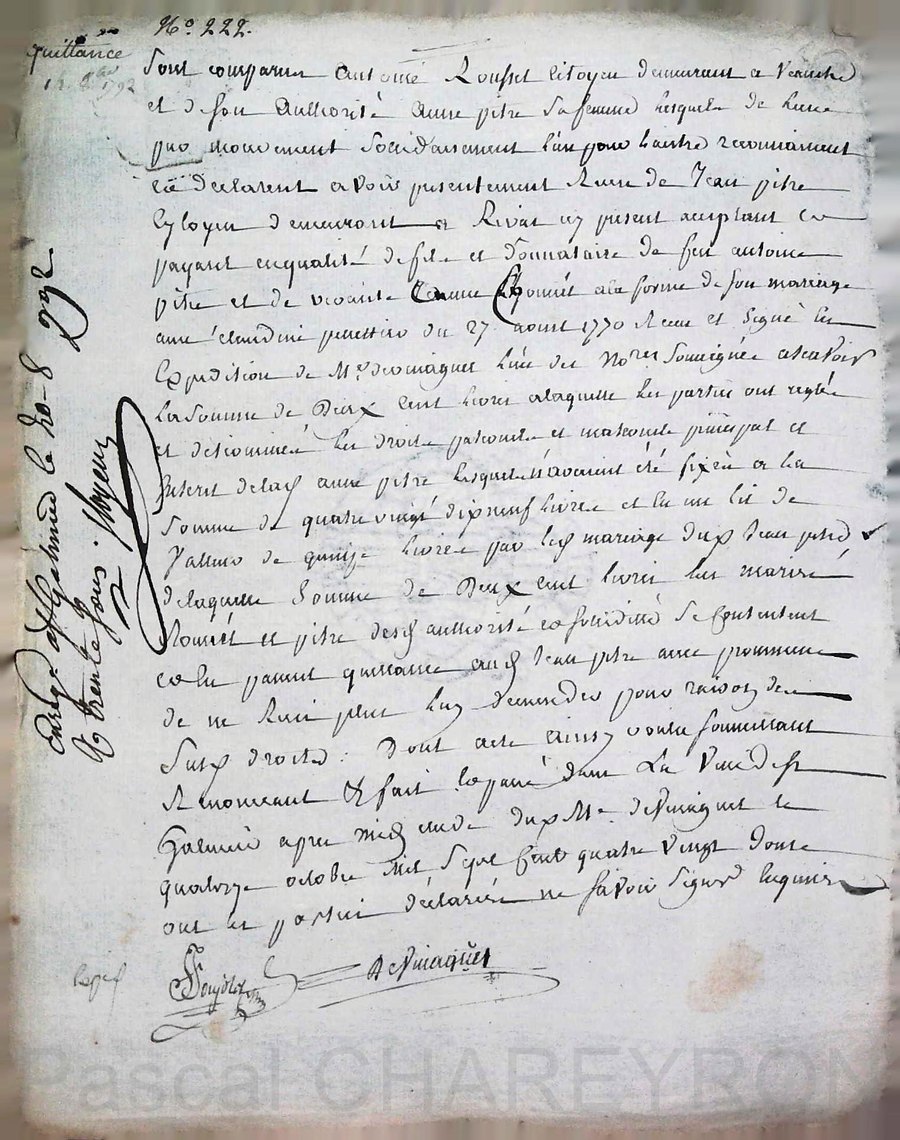 N.o 222.
quittance
14. 8bre 1792
Sont comparus Antoine Rousset Citoyen demeurant a Veauche
et de son Authorité Anne pitre Sa femme Lesquels de Leur
pur mouvement Solidairement L'un pour L'autre reconnaissent
et declarent avoir presentement Receu de Jean pitre
Cytoyen demeurant a Rivas icy present acceptant et
payant en qualité de fils et donnataire de feu antoine
pitre et de vivante a la forme de son mariage
avec Claudine du 27 aoust 1770 Receu et Signé En
Expedition de Me devinaguet L'un des Nores Soussignés a Scavoir
La Somme de Deux Cent Livres a laquelle Les parties ont reglé
et Les droits paternels et maternels principal et
Interit de lad anne pitre Lesquels avaient été fixés a la
Somme de quatre vingt dix neuf Livres et en un Lit de
Valleur de quinze Livres par Led mariage dud Jean pitre
de laquelle Somme de Deux Cent Livres Les mariés
Rousset et pitre desd authorité et Solidité Se Contentent
et En passent quittance aud Jean pitre avec promesse
de ne Rien plus Luy demander pour raison de
Susd droits. Dont acte ainsy voulu Soumettant
Renonceant & fait Et passé dans La Ville de St
Galmier apres midy etude dud Me. deVinaguet Le
quatorze octobre Mil Sept Cent quatre Vingt Douze
ont Les parties déclarées ne Savoir Signer Enquises
DeVinaguet
Enregé a St Galmier le 20 8 1792
R trente sous
Pascal CHAREYRON